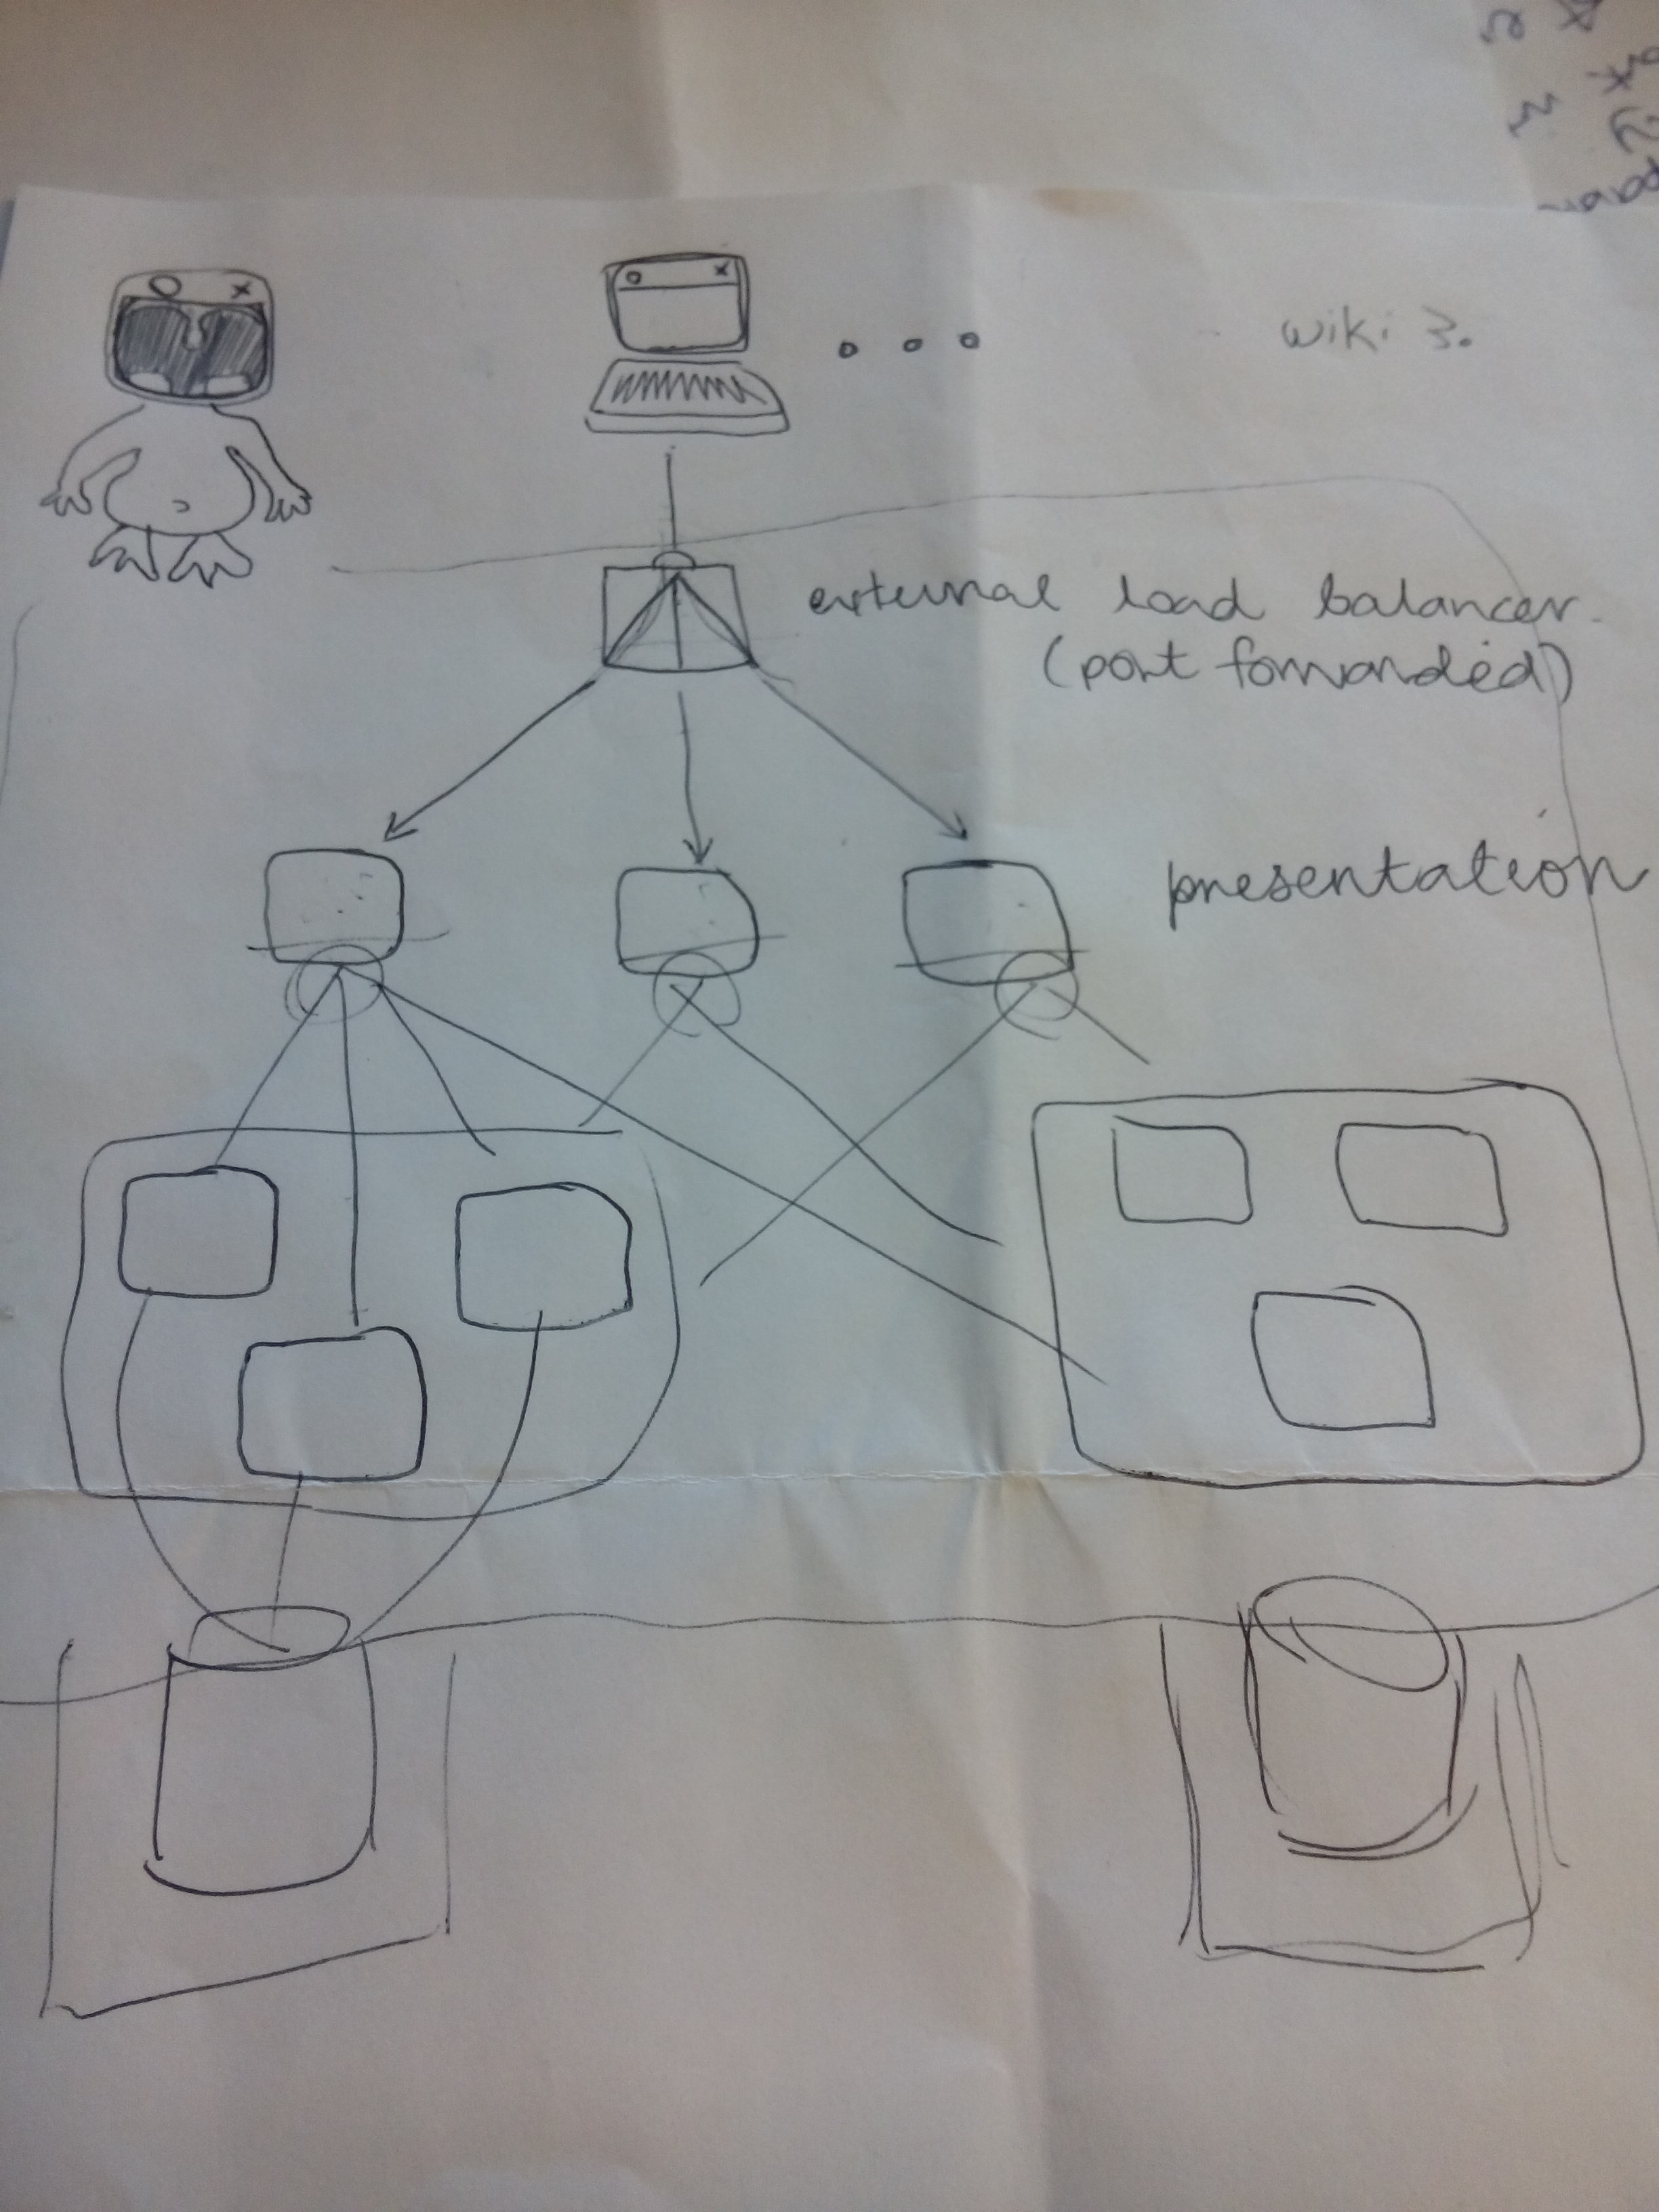 wiki 3.
external load balancer.
(port forwarded)
presentation